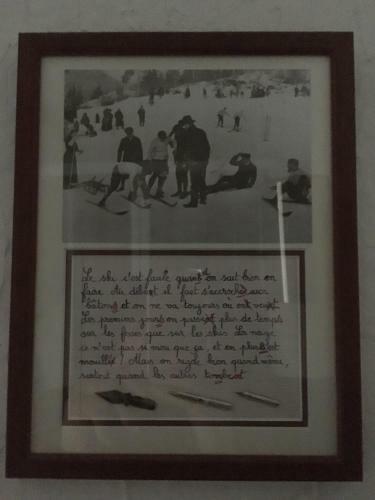 Le ski c'est facile quand on sait bien en
faire. Au début il faut s'accrocher aux
bâtons et on ne va toujours où ont veut.
Les premiers jours on passe plus de temps
sur les fesses que sur les skis. La neige
ce n'est pas si mou que ça, et en plus est
mouillée! Mais on rigole bien quand même,
surtout quand les autres tombent